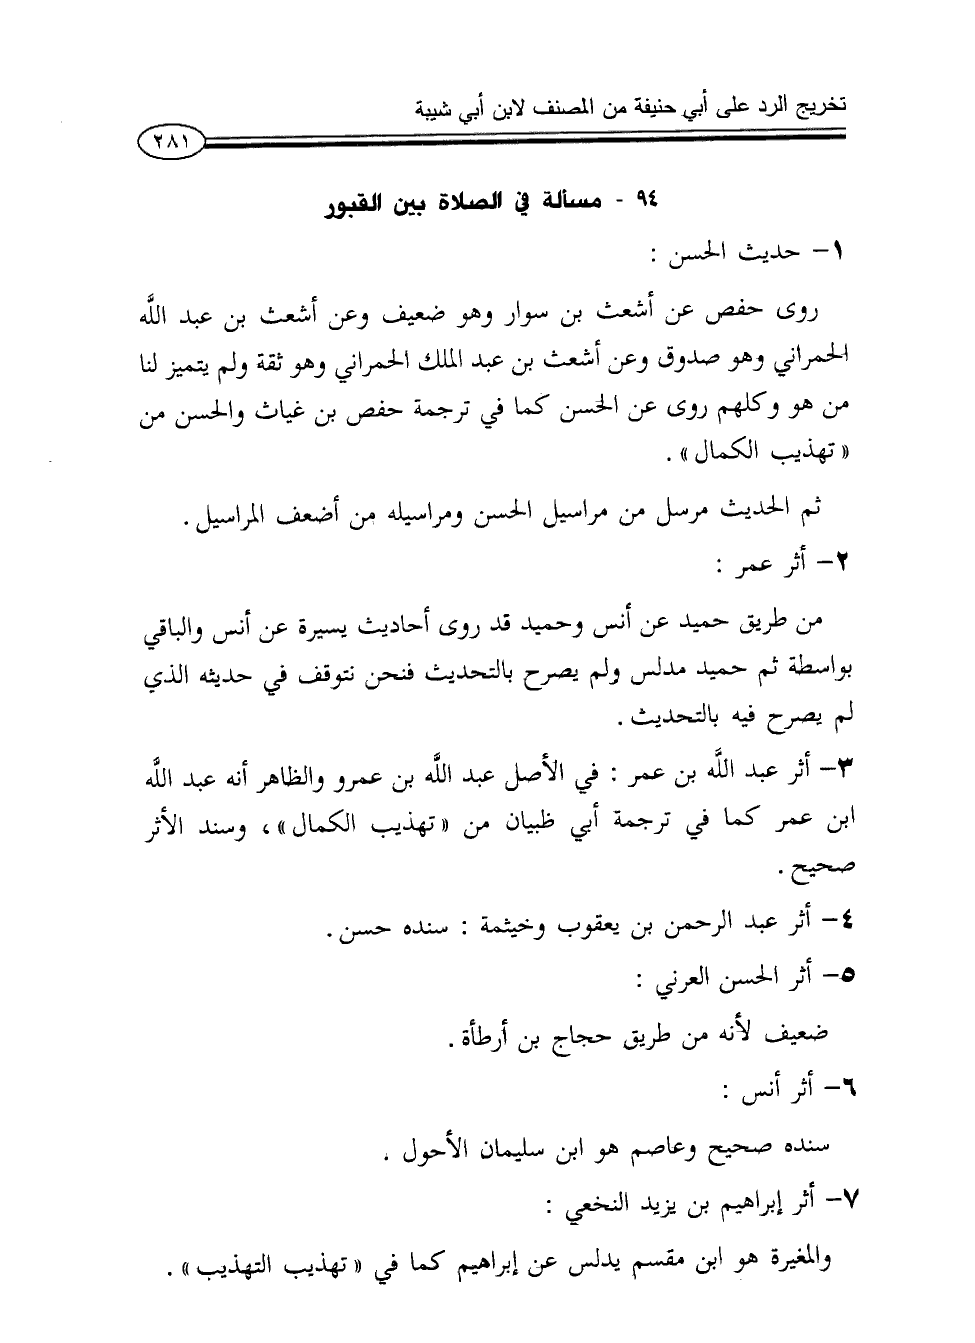 تخريج الرد على أبي حنيفة من المصنف لابن أبي شيبة
٢٨١
٩٤ - مسألة في الصلاة بين القبور
١- حديث الحسن :
روى حفص عن أشعث بن سوار وهو ضعيف وعن أشعث بن عبد الله
الحمراني وهو صدوق وعن أشعث بن عبد الملك الحمراني وهو ثقة ولم يتميز لنا
من هو وكلهم روى عن الحسن كما في ترجمة حفص بن غياث والحسن من
« تهذيب الكمال » .
ثم الحديث مرسل من مراسيل الحسن ومراسيله من أضعف المراسيل .
٢- أثر عمر :
من طريق حميد عن أنس وحميد قد روى أحاديث يسيرة عن أنس والباقي
بواسطة ثم حميد مدلس ولم يصرح بالتحديث فنحن نتوقف في حديثه الذي
لم يصرح فيه بالتحديث .
٣- أثر عبد الله بن عمر : في الأصل عبد الله بن عمرو والظاهر أنه عبد الله
ابن عمر كما في ترجمة أبي ظبيان من « تهذيب الكمال » ، وسند الأثر
صحيح .
٤- أثر عبد الرحمن بن يعقوب وخيثمة : سنده حسن .
٥- أثر الحسن العرني :
ضعيف لأنه من طريق حجاج بن أرطأة .
٦- أثر أنس :
سنده صحيح وعاصم هو ابن سليمان الأحول .
٧- أثر إبراهيم بن يزيد النخعي :
والمغيرة هو ابن مقسم يدلس عن إبراهيم كما في « تهذيب التهذيب » .